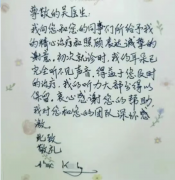 尊敬的吴医生:
我向您和您的同事们所给予我
的精心治疗和照顾表达诚挚的
谢意。初次就诊时,我的耳朵已
完全听不见声音,得益于您及时
的治疗,我的听力大部分得以
保留。衷心感谢您的帮助
我对您和您的团队深怀感
激。
此致
敬礼